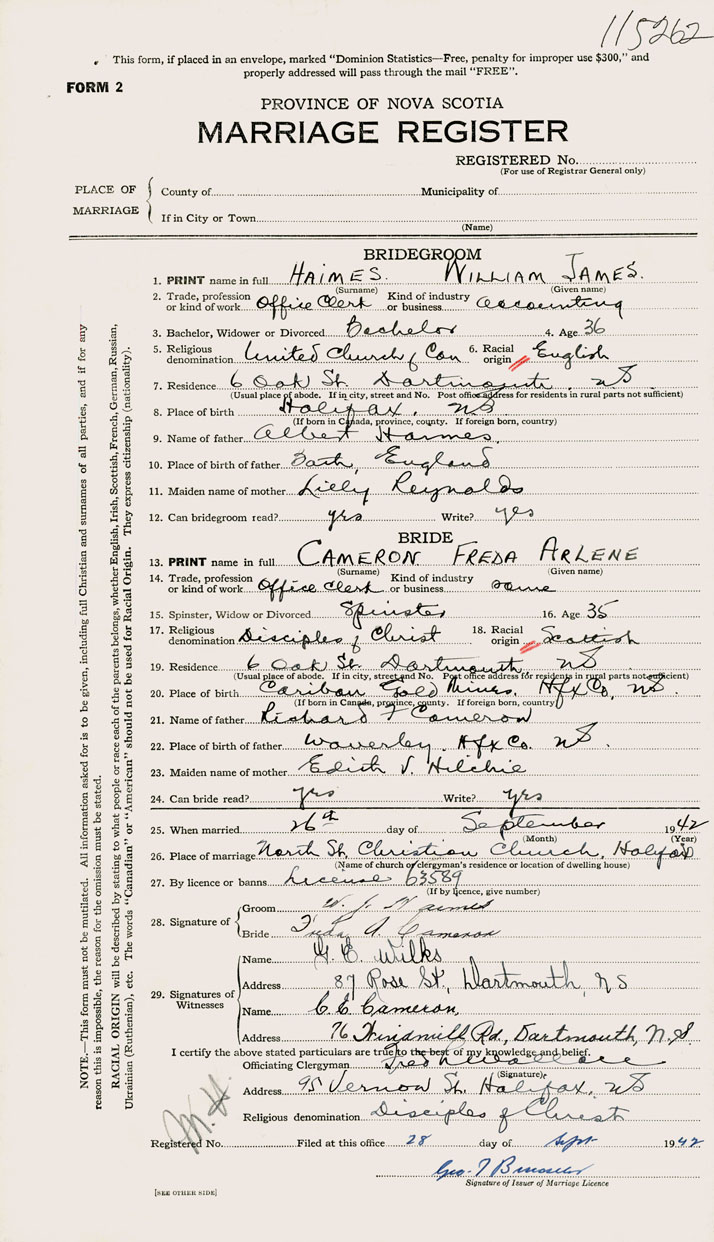 115262
This form, if placed in an envelope, marked "Dominion Statistics—Free, penalty for improper use $300," and
properly addressed will pass through the mail "FREE".
FORM 2
PROVINCE OF NOVA SCOTIA
MARRIAGE REGISTER
REGISTERED No.
(For use of Registrar General only)
PLACE OF MARRIAGE
County of Municipality of
If in City or Town
(Name)
BRIDEGROOM
1. PRINT name in full HAIMES. WILLIAM JAMES.
(Surname) (Given name)
2. Trade, profession or kind of work Office Clerk Kind of industry or business accounting
3. Bachelor, Widower or Divorced Bachelor 4. Age 36
5. Religious denomination United Church of Can 6. Racial origin English
7. Residence 6 Oak St. Dartmouth. NS
(Usual place of abode. If in city, street and No. Post office address for residents in rural parts not sufficient)
8. Place of birth Halifax. NS
(If born in Canada, province, county. If foreign born, country)
9. Name of father Albert Haimes.
10. Place of birth of father Bath, England
11. Maiden name of mother Lilly Reynolds
12. Can bridegroom read? yes Write? yes
BRIDE
13. PRINT name in full CAMERON FREDA ARLENE
(Surname) (Given name)
14. Trade, profession or kind of work Office Clerk Kind of industry or business same
15. Spinster, Widow or Divorced Spinster 16. Age 35
17. Religious denomination Disciples of Christ 18. Racial origin Scottish
19. Residence 6 Oak St. Dartmouth, NS
(Usual place of abode. If in city, street and No. Post office address for residents in rural parts not sufficient)
20. Place of birth Caribou Gold Mines, Hfx Co, NS.
(If born in Canada, province, county. If foreign born, country)
21. Name of father Richard F Cameron
22. Place of birth of father Waverley. Hfx Co. NS.
23. Maiden name of mother Edith V. Hilchie
24. Can bride read? yes Write? yes
25. When married 26th day of September 1942
(Month) (Year)
26. Place of marriage North St. Christian Church, Halifax
(Name of church or clergyman's residence or location of dwelling house)
27. By licence or banns License 63589
(If by licence, give number)
28. Signature of
Groom W. J. Haimes
Bride Freda A. Cameron
29. Signatures of Witnesses
Name G. E. Wilks
Address 87 Rose St., Dartmouth, NS
Name C. E. Cameron,
Address 76 Windmill Rd., Dartmouth, N.S.
I certify the above stated particulars are true to the best of my knowledge and belief.
Officiating Clergyman Fred Wallace
(Signature)
Address 95 Vernon St. Halifax, NS
Religious denomination Disciples of Christ
M.H.
Registered No. Filed at this office 28 day of Sept 1942
Geo. T
Signature of Issuer of Marriage Licence
[SEE OTHER SIDE]
NOTE.—This form must not be mutilated. All information asked for is to be given, including full Christian and surnames of all parties, and if for any
reason this is impossible, the reason for the omission must be stated.
RACIAL ORIGIN will be described by stating to what people or race each of the parents belongs, whether English, Irish, Scottish, French, German, Russian,
Ukrainian (Ruthenian), etc. The words "Canadian" or "American" should not be used for Racial Origin. They express citizenship (nationality).